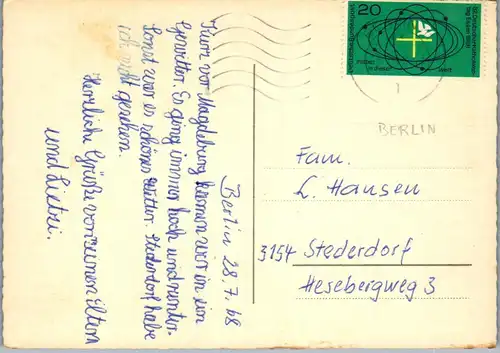 Berlin 28.7.68
Kurz vor Magdeburg kamen wir in ein
Gewitter. Es ging immer hoch und runter.
Sonst war es schönes Wetter. Stederdorf habe
ich nicht gesehen.
Herzliche Grüße von seinen Eltern
und
20
1
BERLIN
Fam.
L. Hansen
3154 Stederdorf
Hesebergweg 3